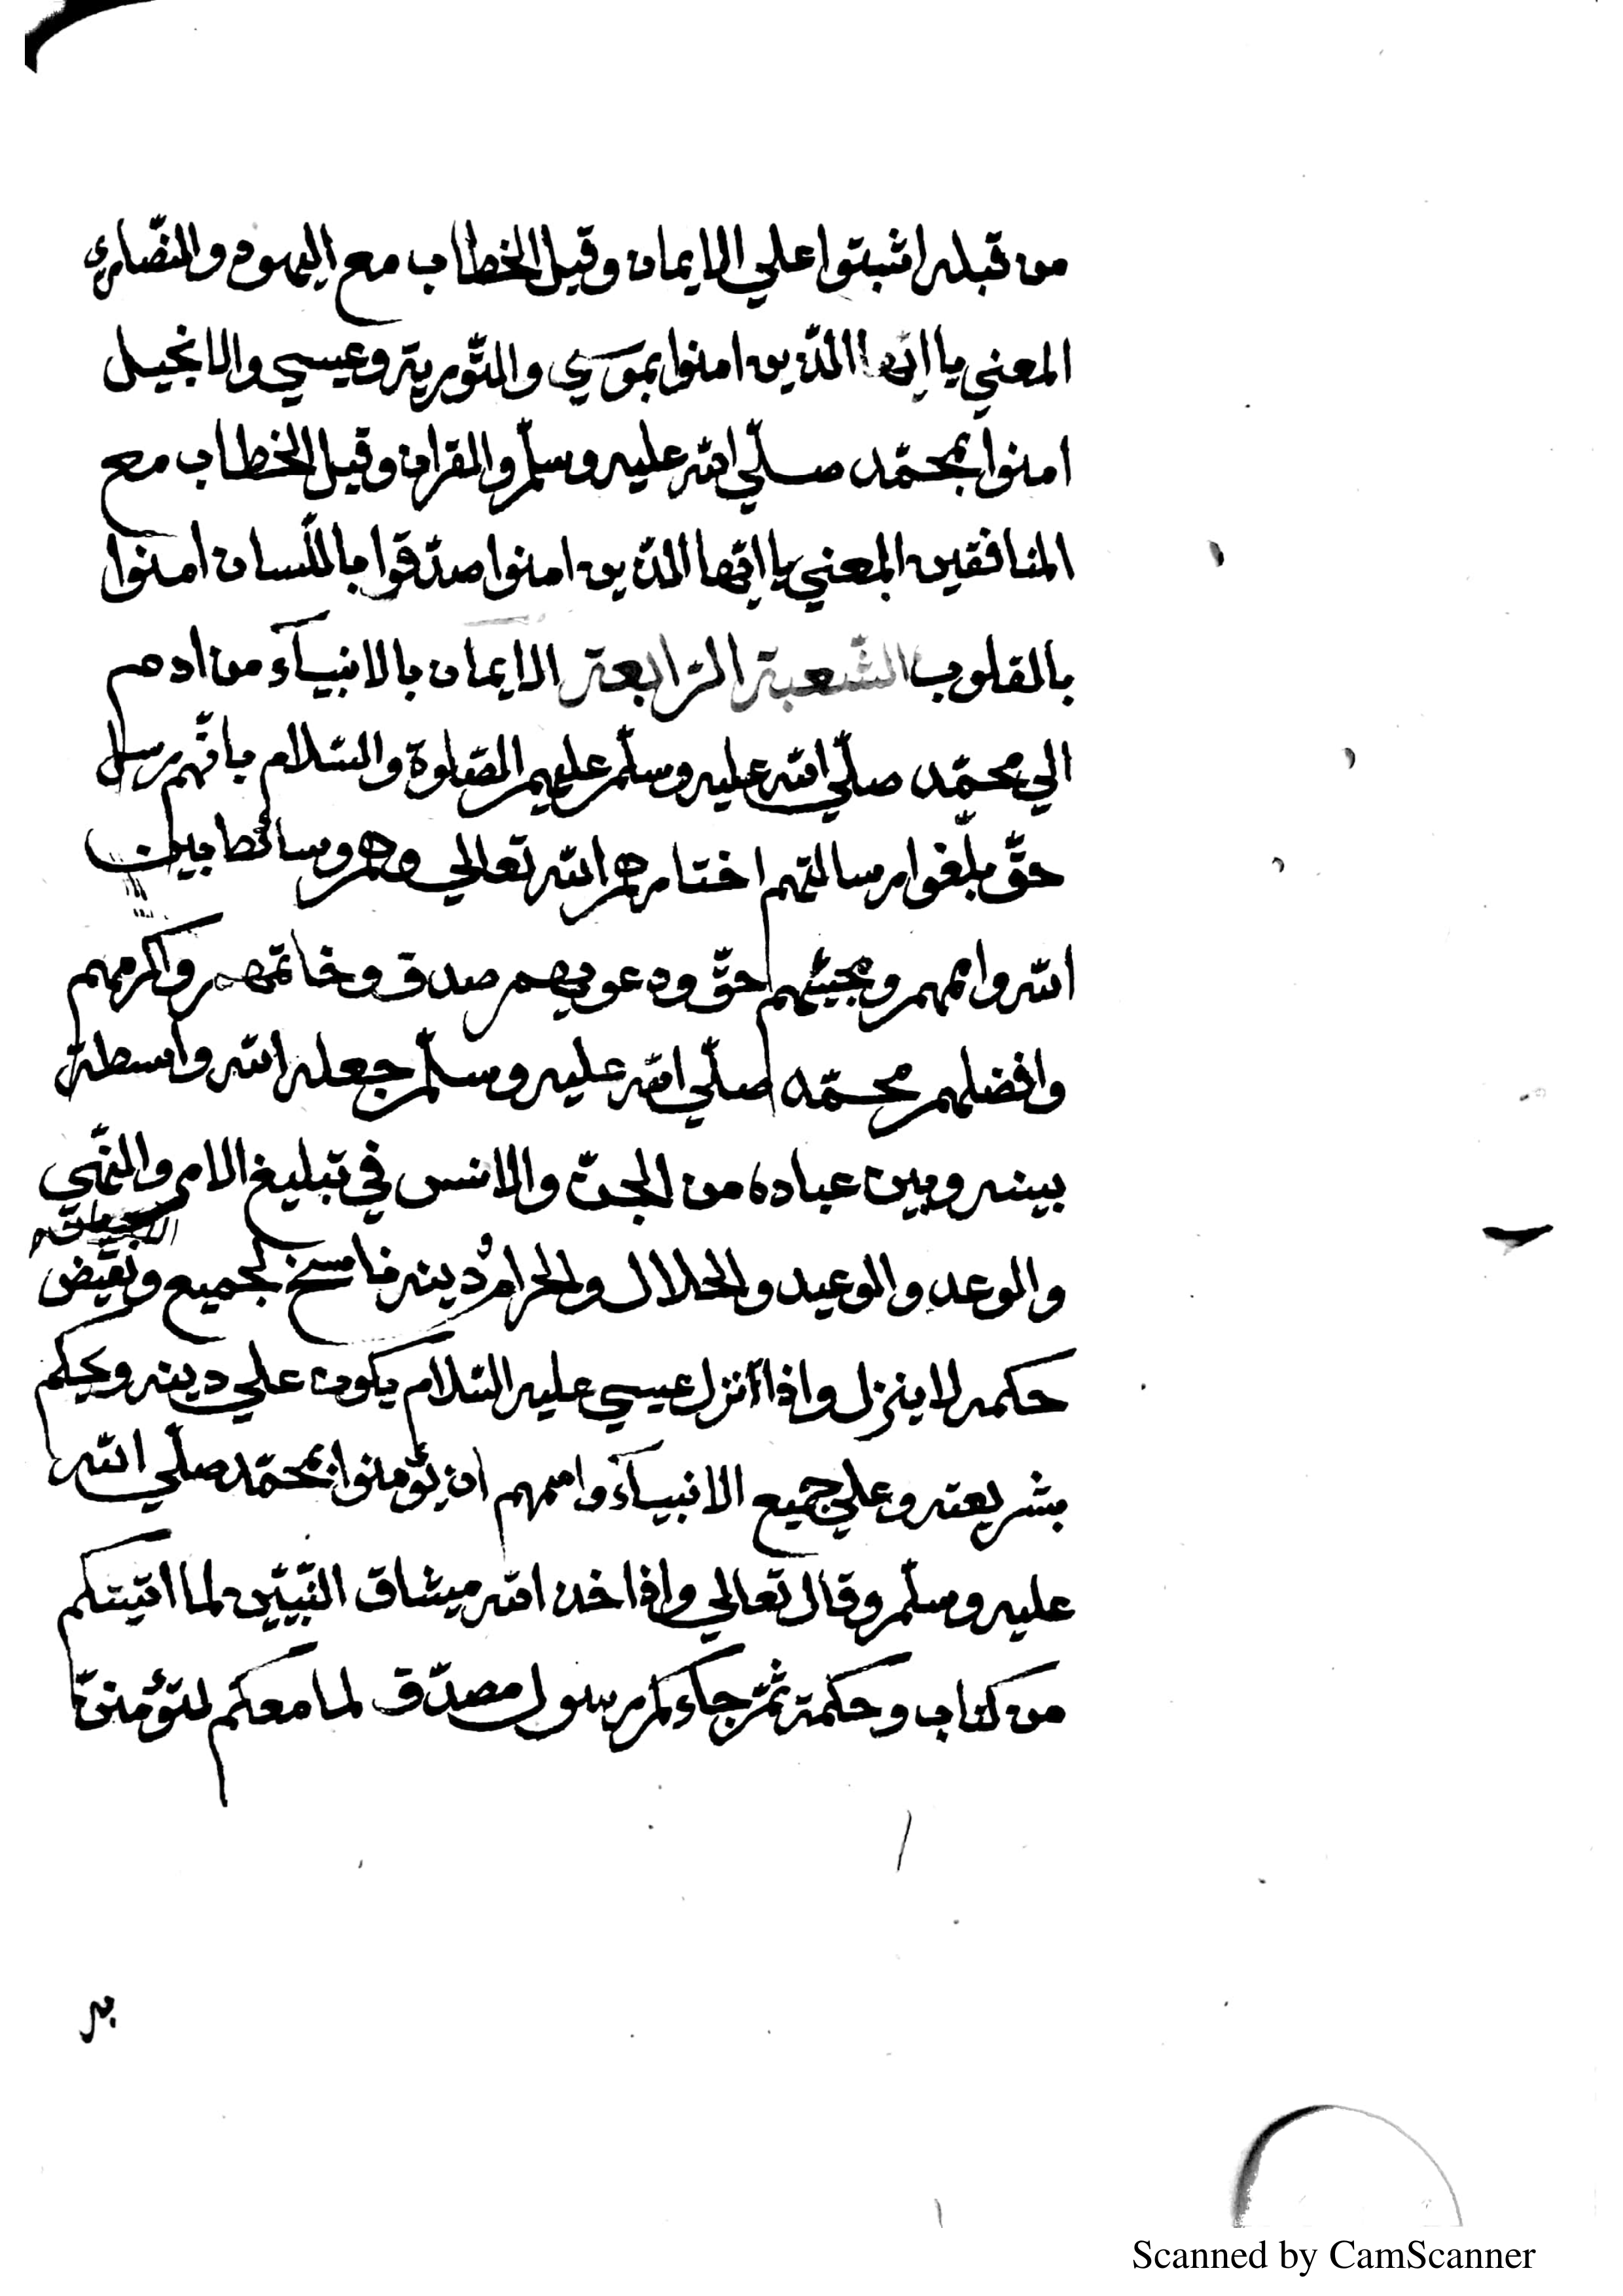 من قبله اثبتوا علي الايمان وقيل الخطاب مع اليهود والنّصاري
المعني يا ايّها الّذين امنوا بموسي والتّورية وعيسي والانجيل
امنوا بمحمّد صلّي الله عليه وسلّم والقران وقيل الخطاب مع
المنافقين المعني يا ايّها الّذين امنوا صدّقوا باللّسان امنوا
بالقلوب الشّعبة الرّابعة الايمان بالانبيآء من ادم
الي محمّد صلّي الله عليه وسلّم عليهم الصّلوة والسّلام بانّهم رسل
حقّ بلّغوا رسالتهم اختارهم الله تعالي وهم وسائط بين
الله وامهم ومجيئهم حقّ ودعويهم صدق وخاتمهم واكرمهم
وافضلهم محمّد صلّي الله عليه وسلّم جعله الله واسطة
بينه وبين عباده من الجنّ والانس في تبليغ الامر والنّهي
والوعد والوعيد والحلال والحرام ودينه ناسخ لجميع ونقيض
حكمه لا ينزل واذا انزل عيسي عليه السّلام يكون علي دينه ويحكم
بشريعته وعلي جميع الانبيآء واممهم ان يؤمنوا بمحمّد صلّي الله
عليه وسلّم وقال تعالي واذ اخذ الله ميثاق النّبيّين لما اتيتكم
من كتاب وحكمة ثمّ جاءكم رسول مصدّق لما معكم لتؤمننّ
به
Scanned by CamScanner